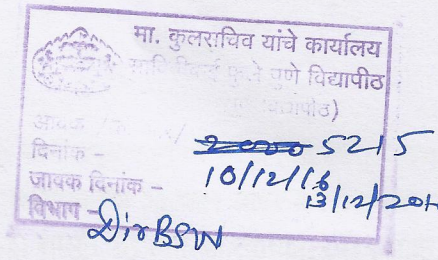 मा. कुलसचिव यांचे कार्यालय
फुले पुणे विद्यापीठ
5215
दिनांक - 10/12/16
जावक दिनांक - 13/12/201
विभाग - DirBSW